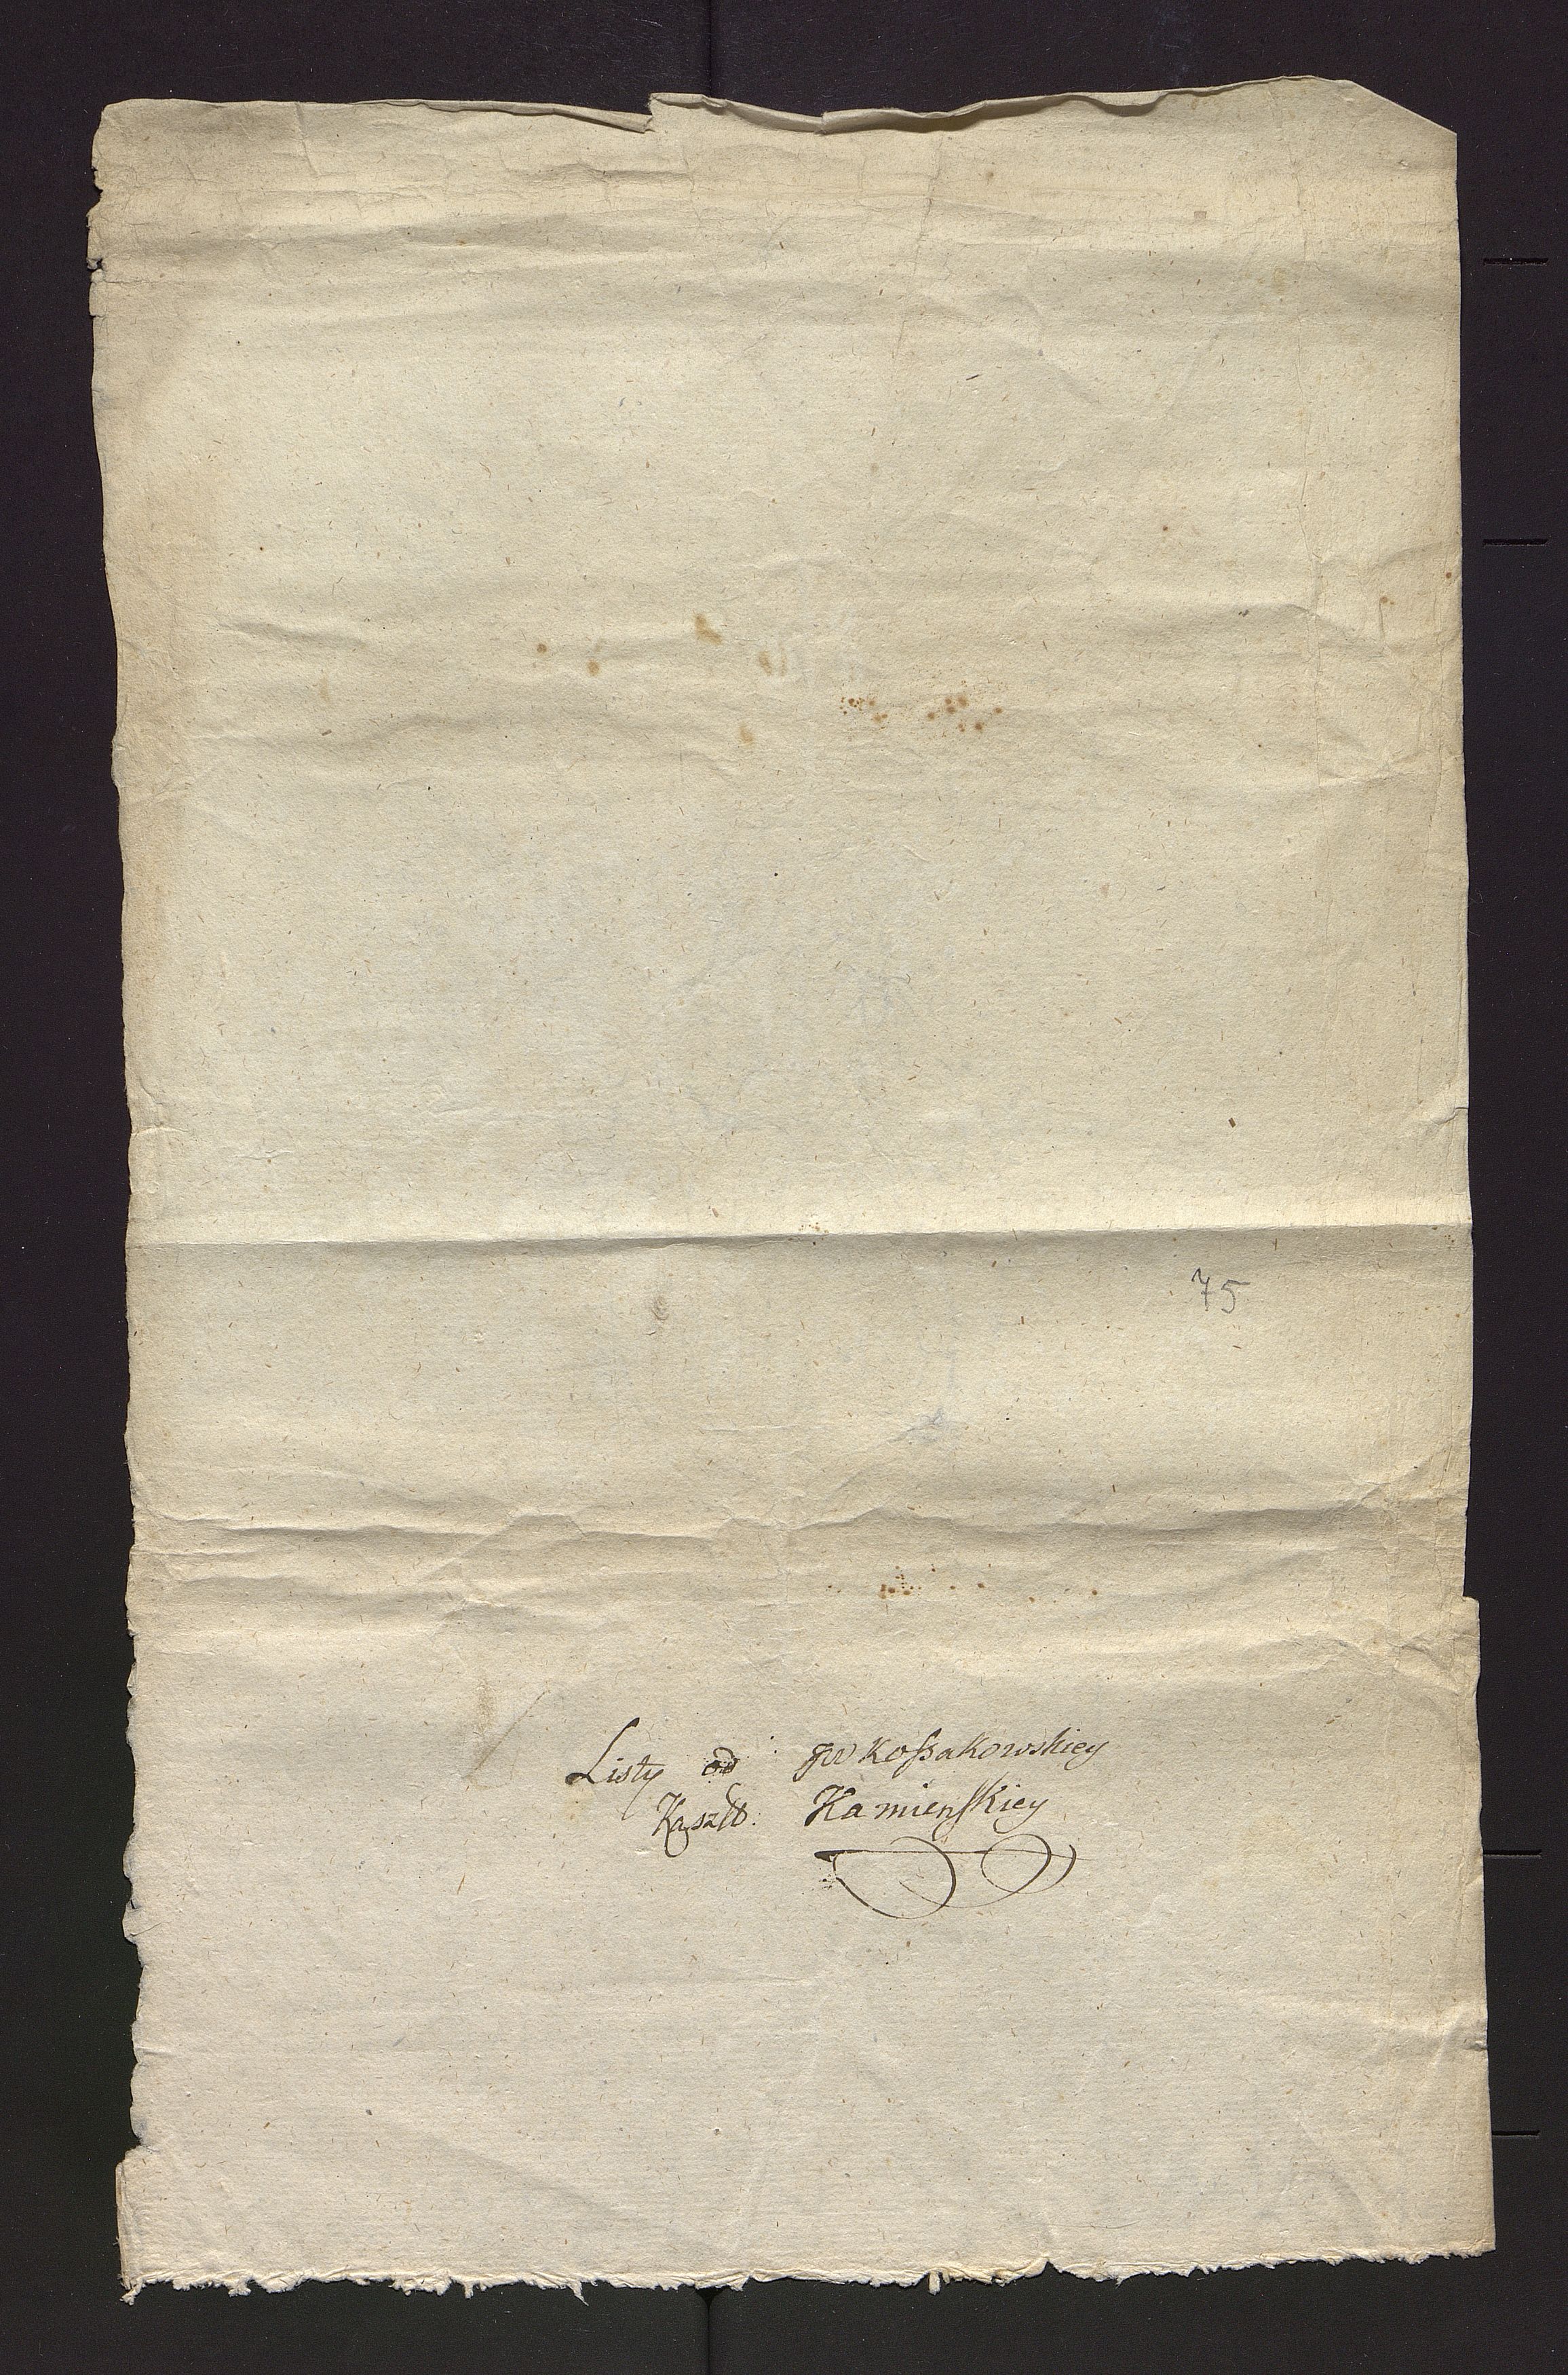 75
Listy od JW Kossakowskiey
Kasztt: Kamienskiey